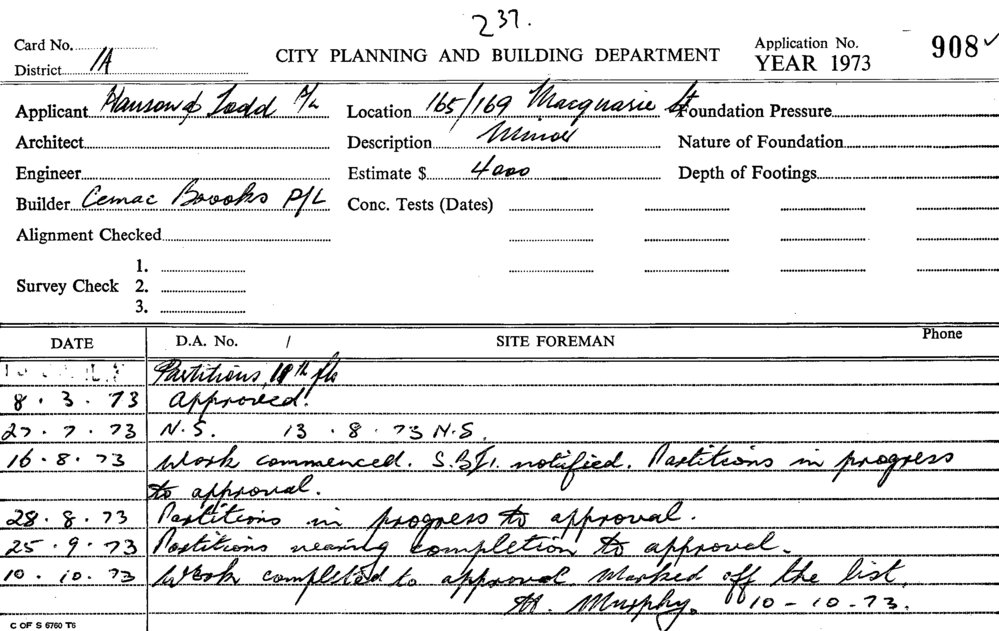 237.
Card No.
Application No.
908 ✓
CITY PLANNING AND BUILDING DEPARTMENT
YEAR 1973
District 1A
Applicant Hanson & Todd P/L Location 165/169 Macquarie St Foundation Pressure
Architect Description Minor Nature of Foundation
Engineer Estimate $ 4000 Depth of Footings
Builder Cemac Brooks P/L Conc. Tests (Dates)
Alignment Checked
1.
Survey Check 2.
3.
DATE D.A. No. / SITE FOREMAN Phone
Partitions, 18th flr
8.3.73 Approved.
27.7.73 N.S. 13.8.73 N.S.
16.8.73 Work commenced. S.B.I. notified. Partitions in progress
to approval.
28.8.73 Partitions in progress to approval.
25.9.73 Partitions nearing completion to approval.
10.10.73 Work completed to approval marked off the list.
Murphy. 10-10-73.
C OF S 6760 T6